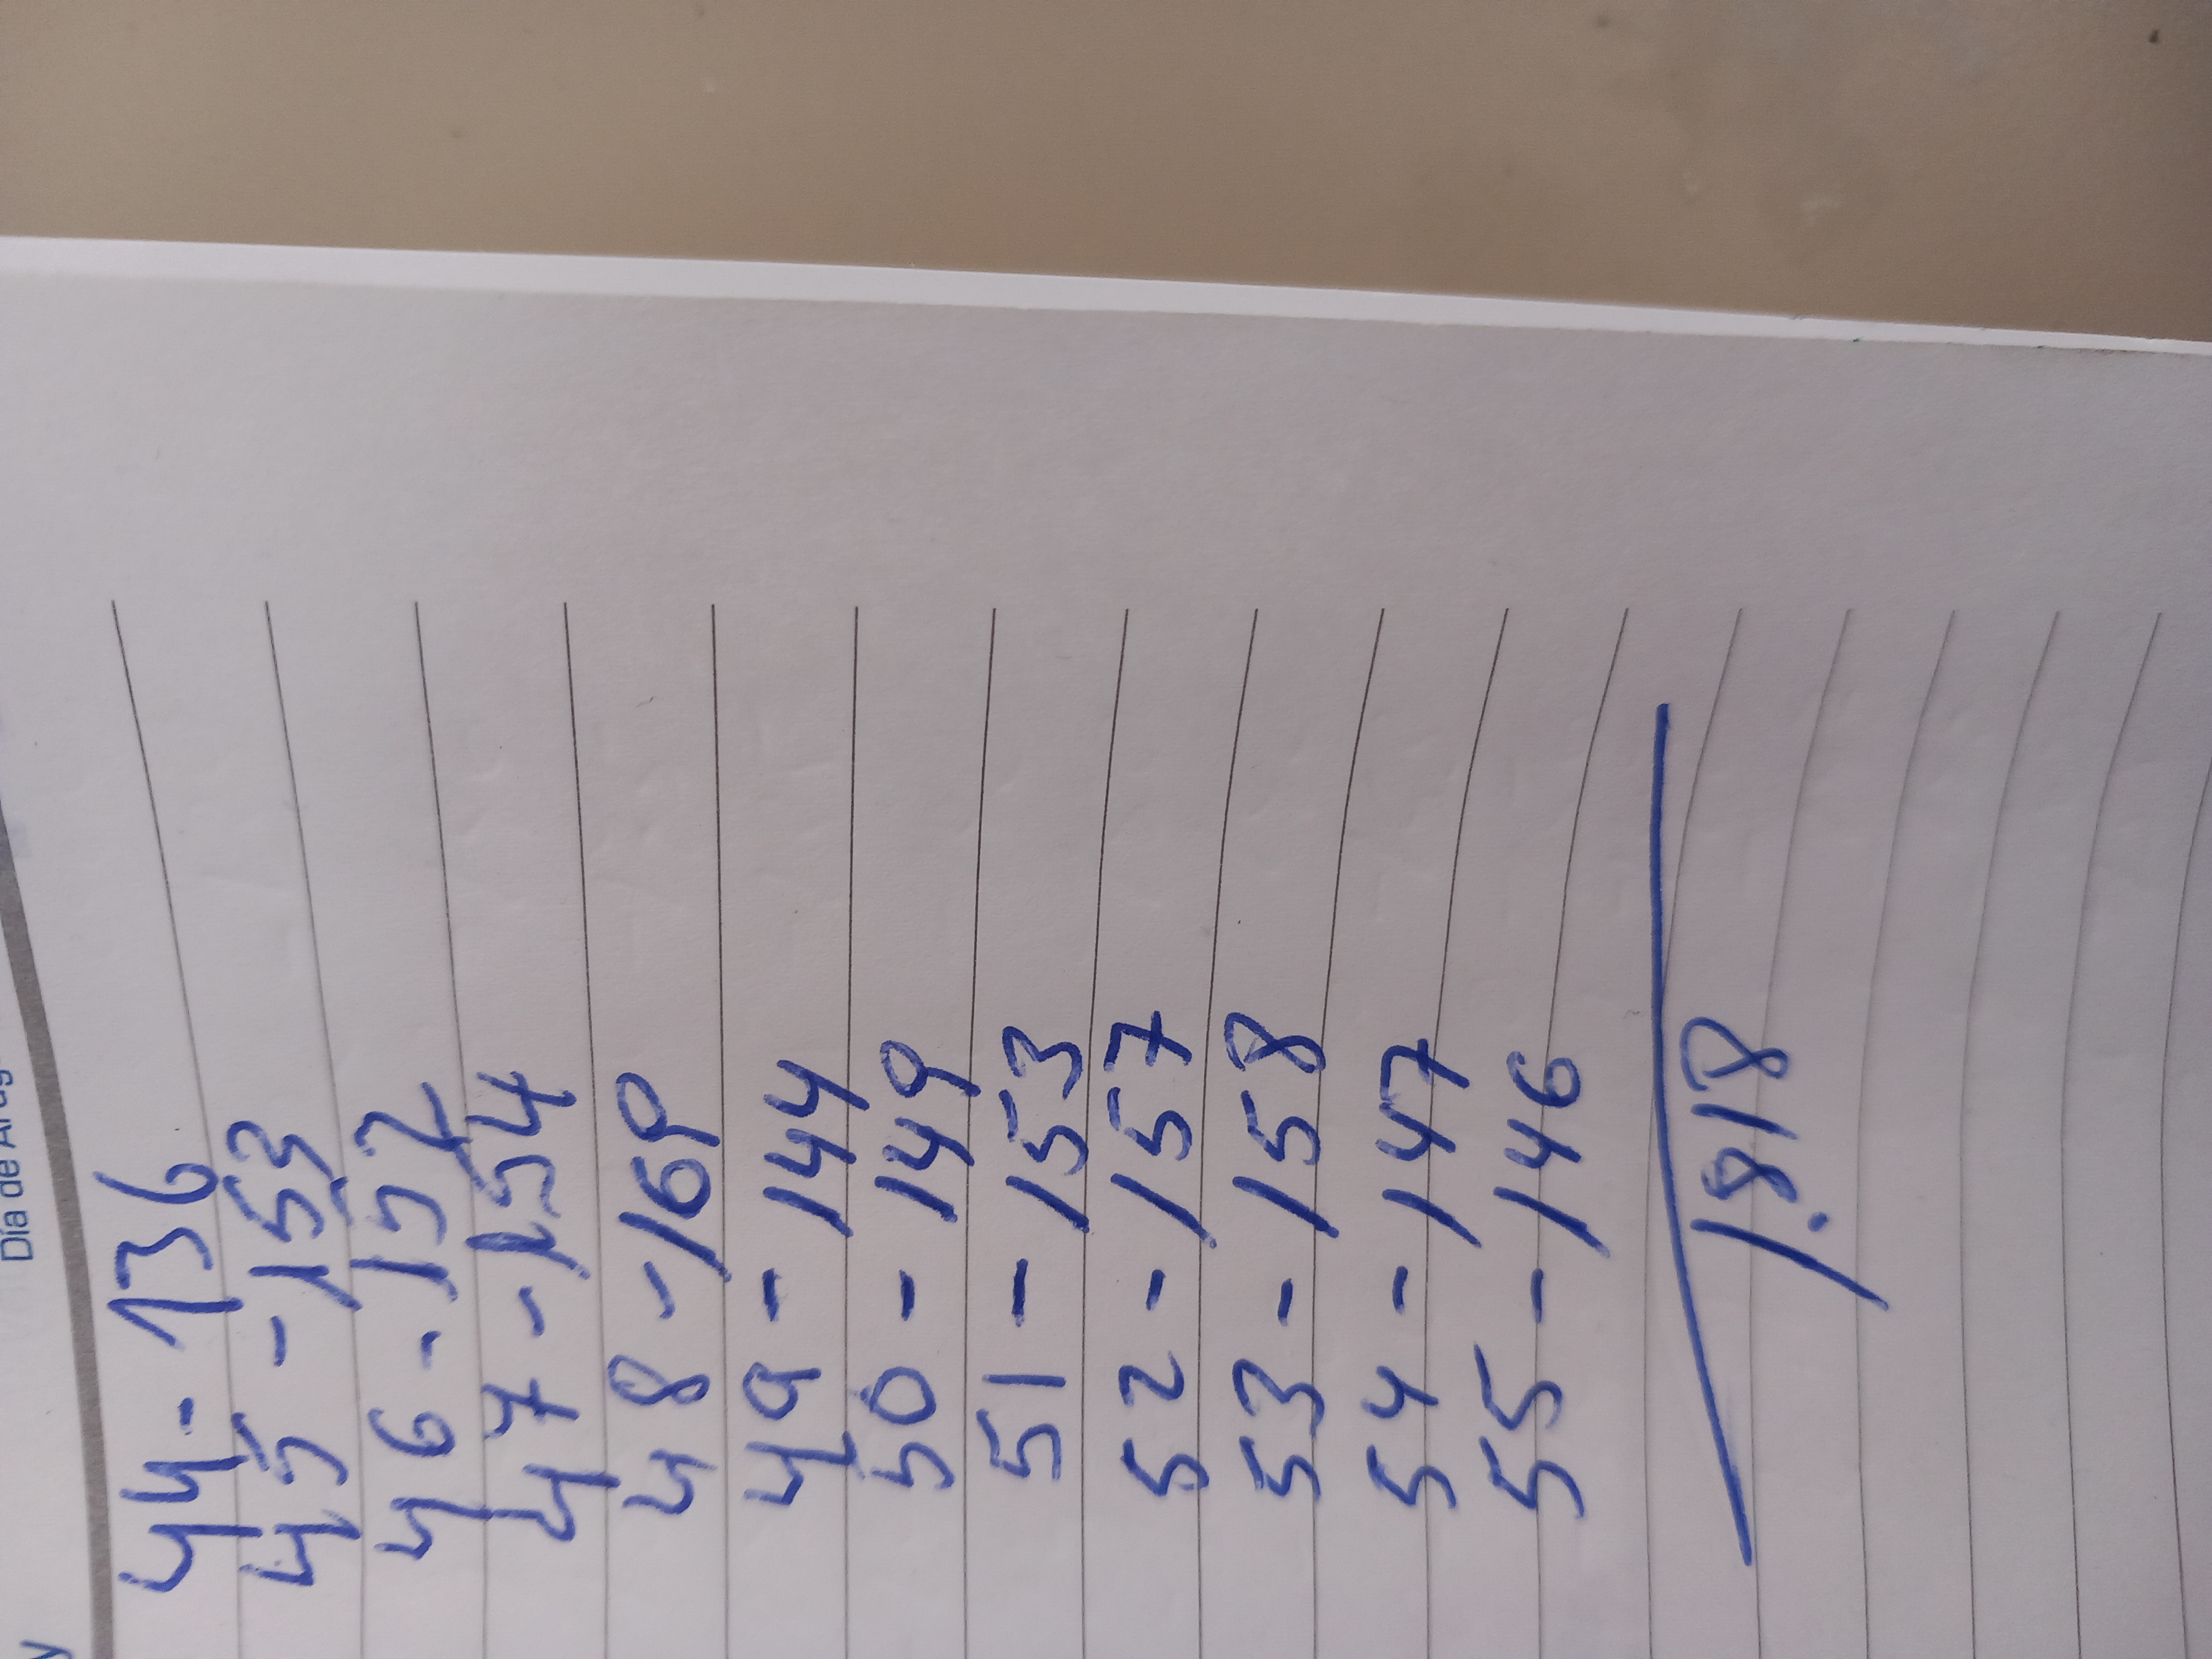 Día de
44 - 136
45 - 153
46 - 152
47 - 154
48 - 169
49 - 144
50 - 149
51 - 153
52 - 157
53 - 158
54 - 147
55 - 146
1.818